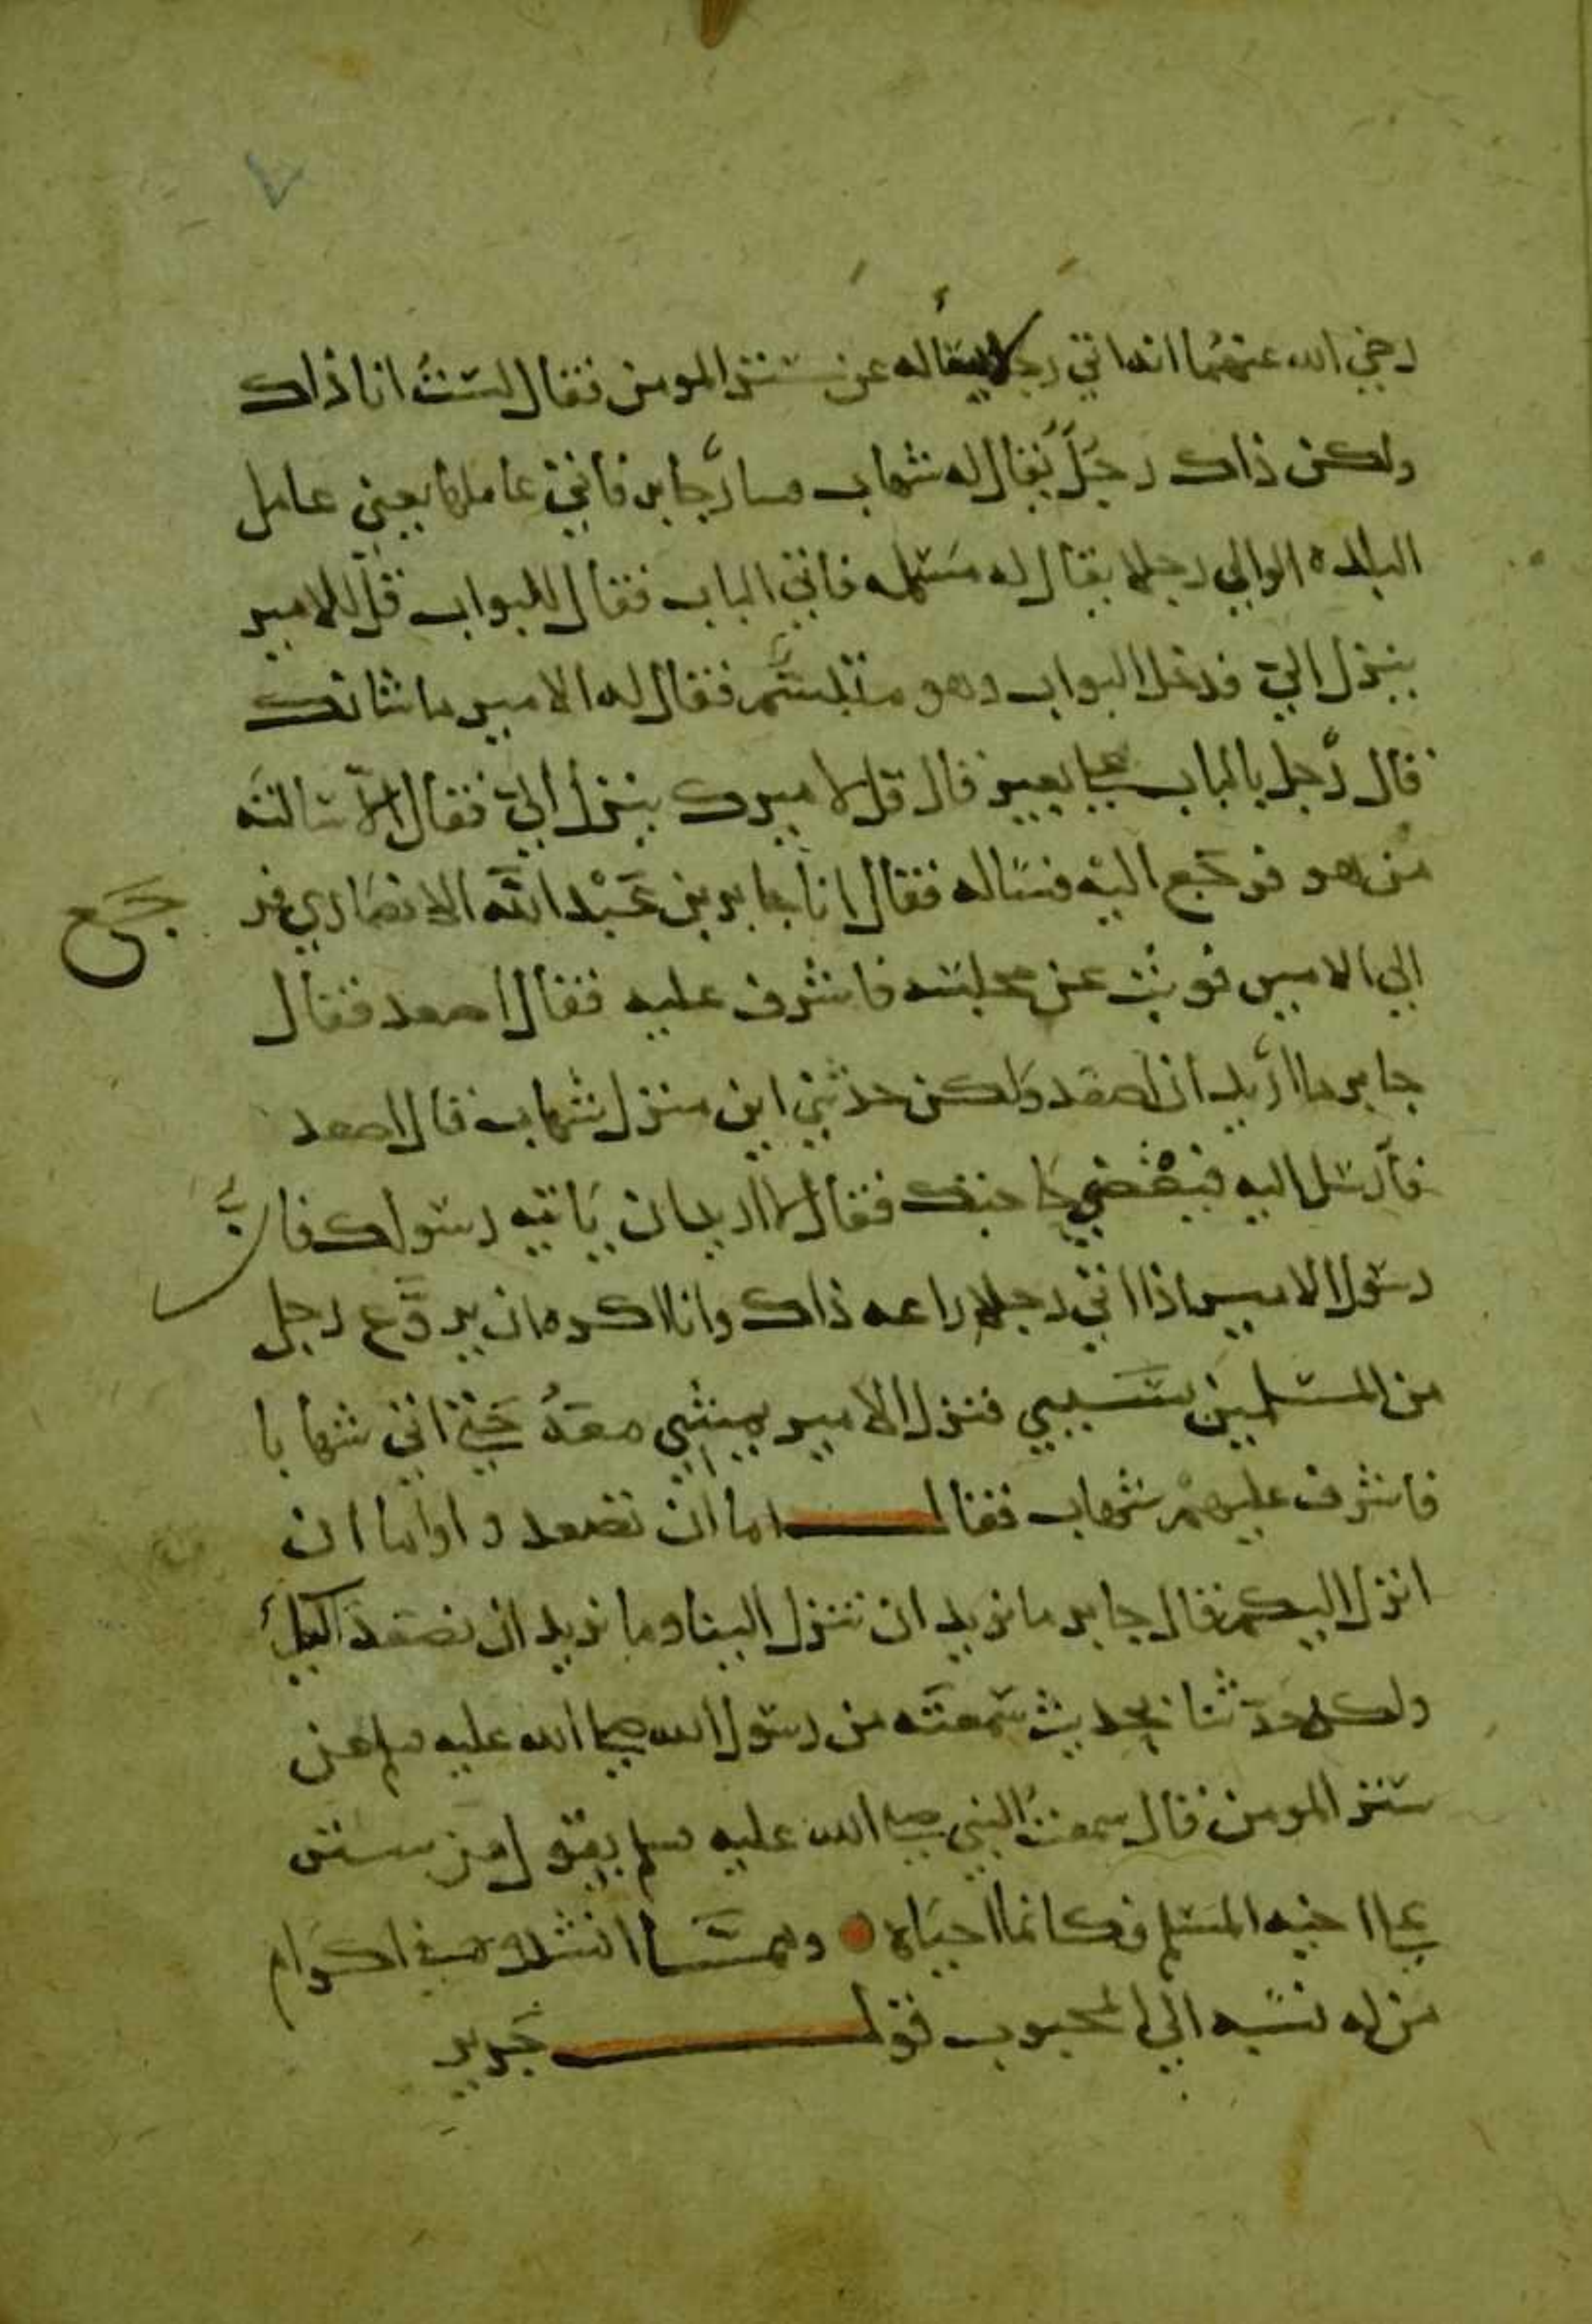 ٧
رضي الله عنهما انه اتي رجلا يسأله عن ستر المومن فقال لستُ انا ذاك
ولكن ذاك رجلٌ يُقال له شهاب فسار جابر فاتي عاملها يعني عامل
البلدة الوالي رجلا يقال له مسلمه فاتي الباب فقال للبواب قل للامير
ينزل اليّ فدخل البواب وهو متبسّم فقال له الامير ما شانك
قال رجل بالباب علي بعير قال قل لاميرك ينزل اليّ فقال الا سالته
من هو فرجع اليه فساله فقال انا جابر بن عبد الله الانصاري فر
جع
الي الامير فوثب عن مجلسه فاشرف عليه فقال اصعد فقال
جابر ما اريد ان اصعد ولكن حدثني اين منزل شهاب قال اصعد
فأرسل اليه فيقضي حاجتك فقال لا اريد ان ياتيه رسولك فانّ
رسول الامير اذا اتي رجلا راعه ذاك وانا اكره ان يروّع رجل
من المسلمين بسببي فنزل الامير يمشي معهُ حتي اتي شهابا
فاشرف عليهم شهاب فقال اما ان تصعدوا واما ان
انزل اليكم فقال جابر ما نريد ان تنزل الينا وما نريد ان نصعد اليك
ولكن حدثنا بحديث سمعته من رسول الله صلي الله عليه سلم عن
ستر المومن قال سمعتُ النبي صلي الله عليه سلم يقول من ستر
علي اخيه المسلم فكانما احياه ومما انشد في اكرام
من له نسبه الي المحبوب قول جرير